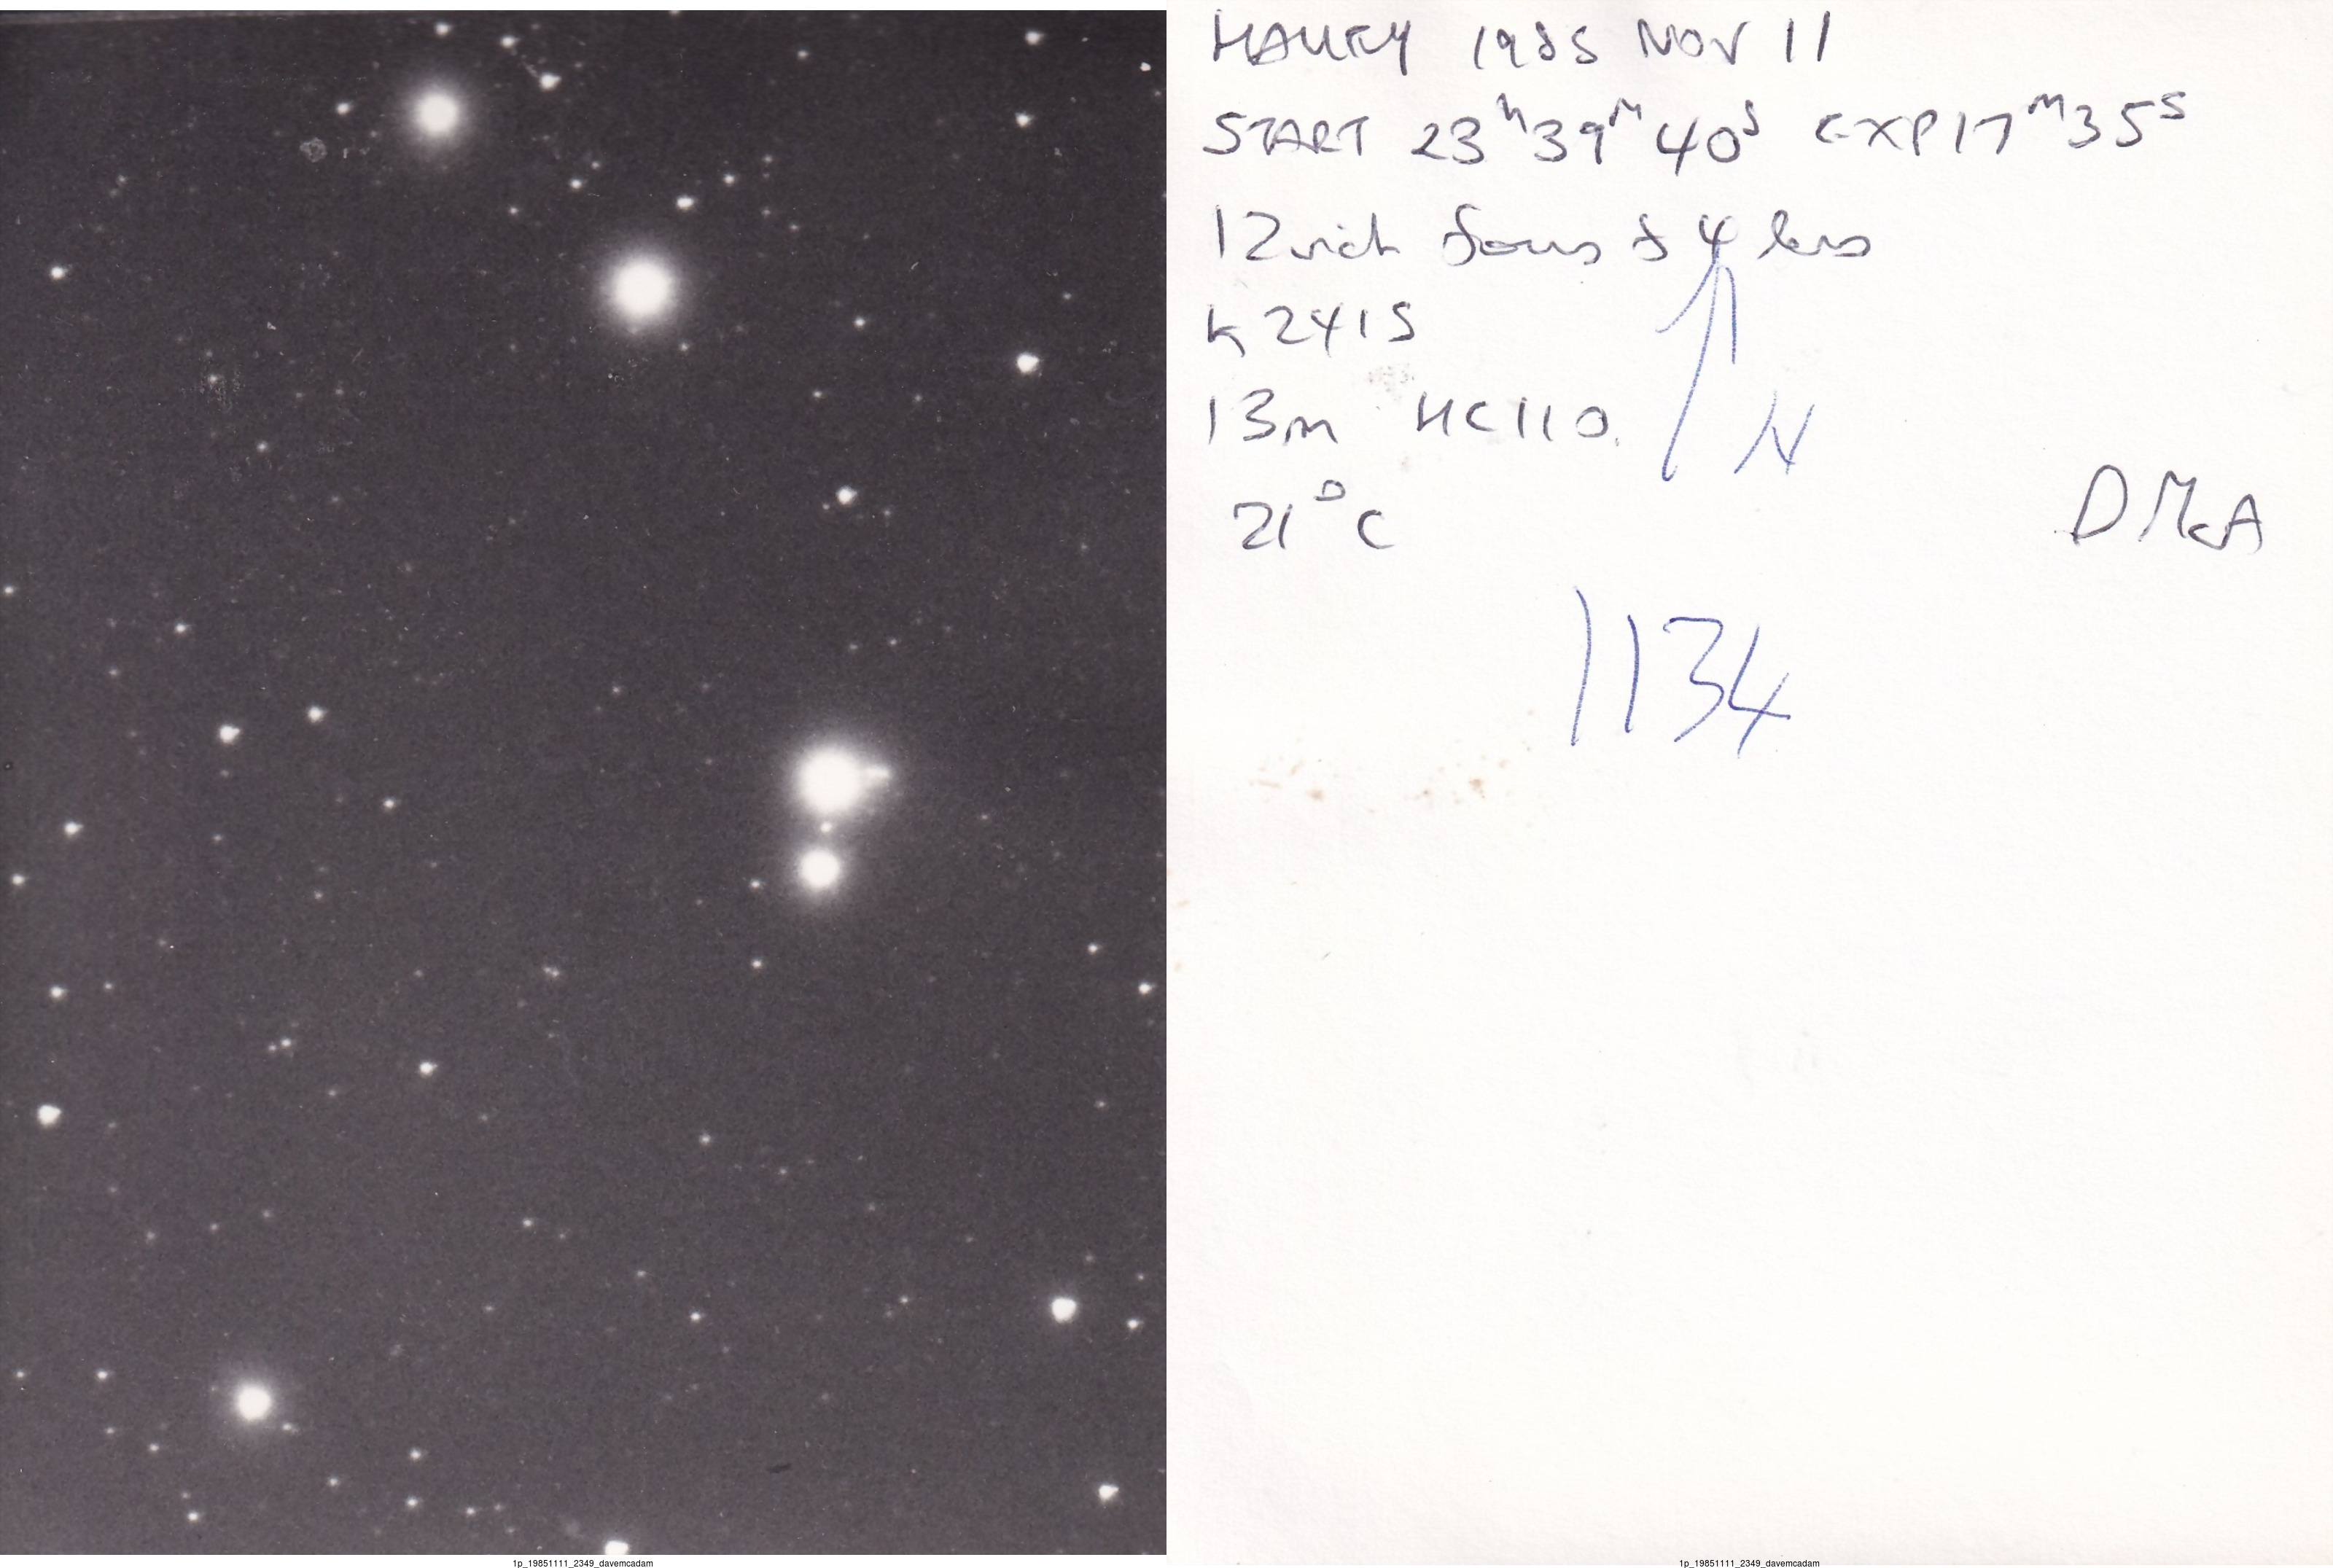 HALLEY 1985 NOV 11
START 23h39m40s EXP17m35s
12inch focus f4 lens
K2415
13m HC110.
N
21°C
DMcA
1134
1p_19851111_2349_davemcadam
1p_19851111_2349_davemcadam